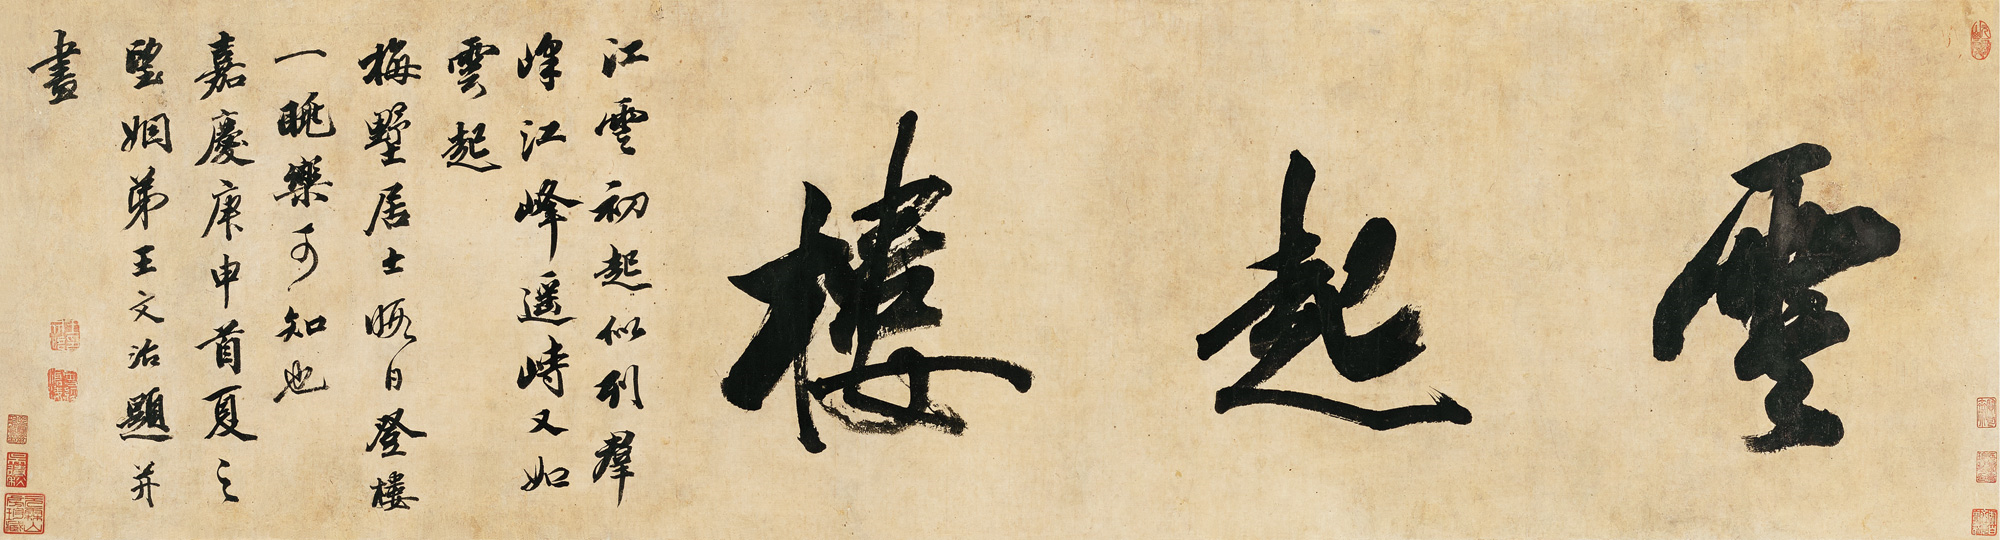 雲起樓
江雲初起似列群
峰江峰遥峙又如
雲起
梅墅居士暇日登樓
一眺樂可知也
嘉慶庚申首夏之
望姻弟王文治題并
書